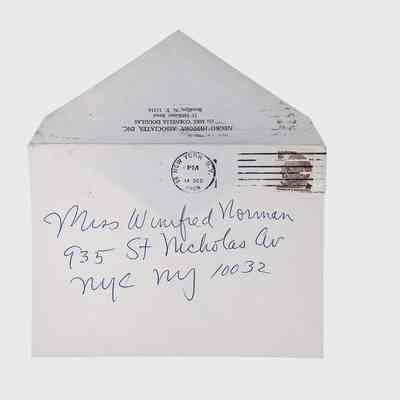 NEGRO HISTORY ASSOCIATES, INC.
c/o MRS. CORNELIA DOUGLAS
Brooklyn, N. Y.
NEW YORK, N.Y.
PM
14 DEC
Miss Winifred Norman
935 St Nicholas Av
NYC NY 10032